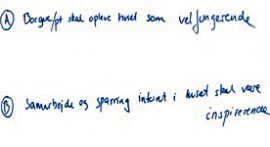 (A) Borger/pt skal opleve huset som velfungerende
(B) Samarbejde og sparring internt i huset skal være
inspirerende